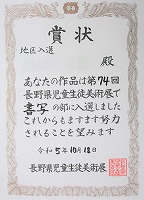 賞状
地区入選
殿
あなたの作品は第74回
長野県児童生徒美術展で
書写の部に入選しました
これからもますます努力
されることを望みます
令和5年10月18日
長野県児童生徒美術展